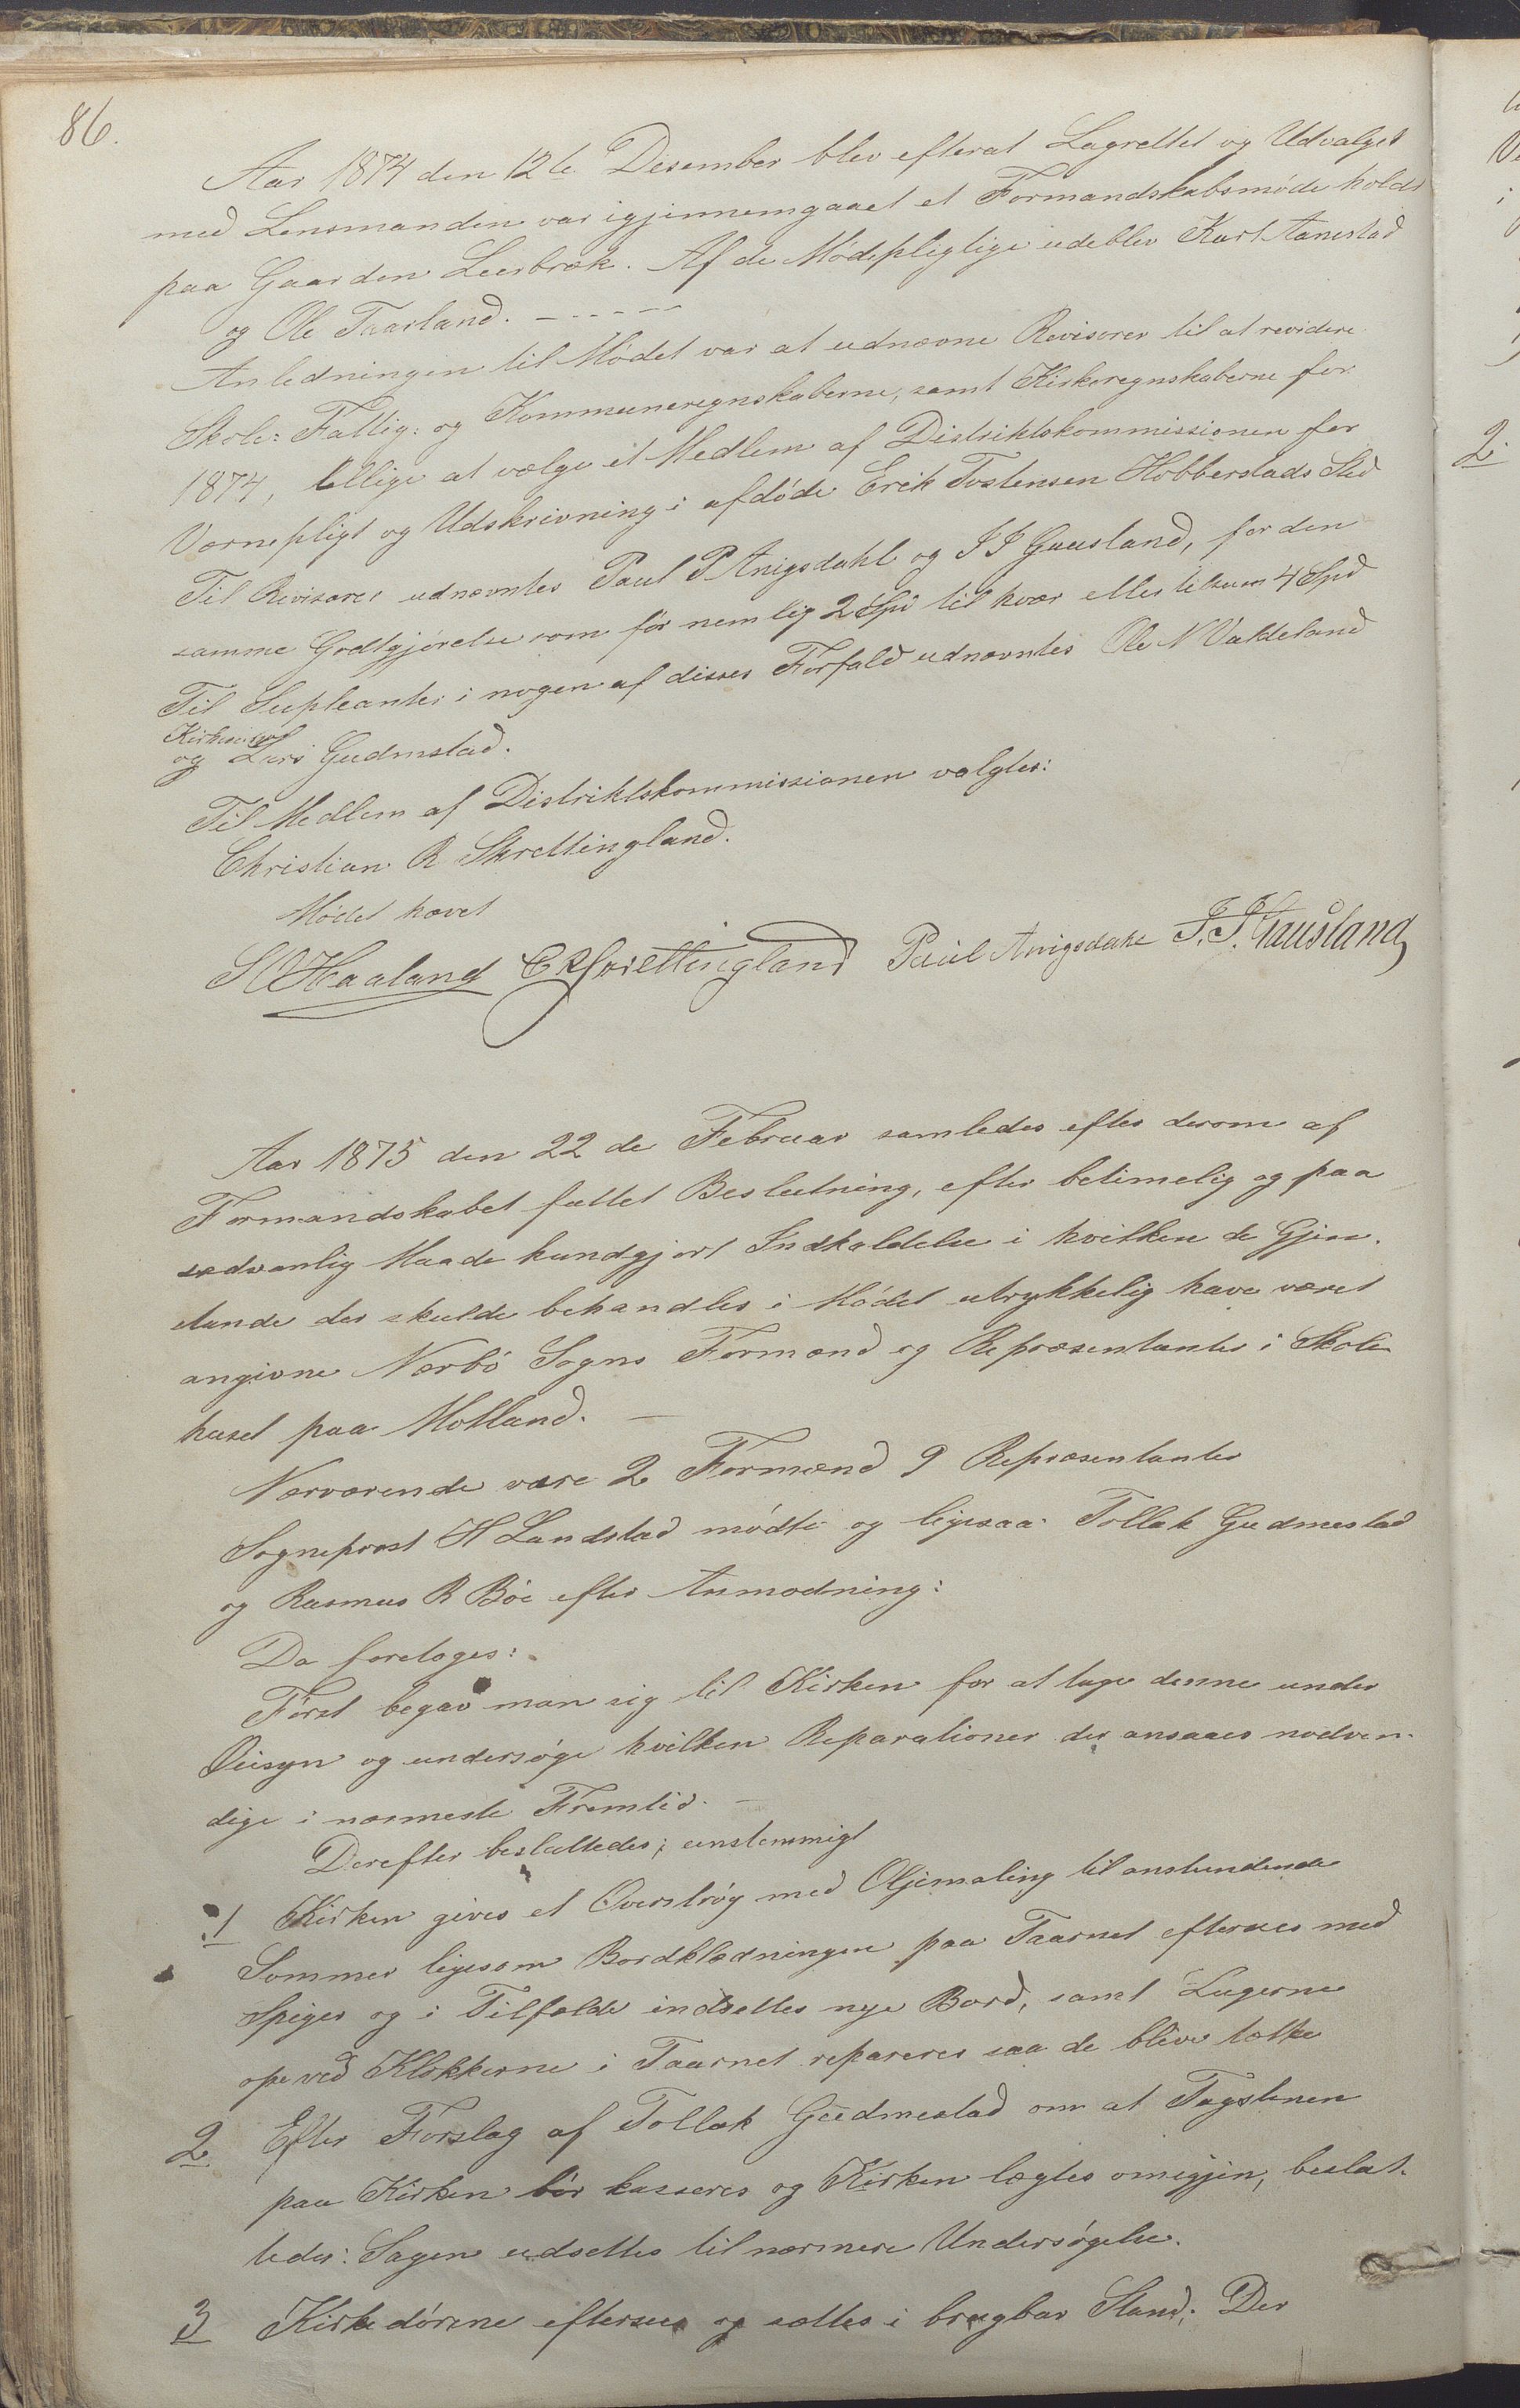 86.
Aar 1874 den 12te Desember blev efterat Lagrettet og Udvalget
med Lensmanden var igjinnemgaaet et Formandskabsmöde holdt
paa Gaarden Leerbræk. Af de Mödepligtige udeblev Karl Aanestad
og Ole Taarland. - - - - -
Anledningen til Mödet var at udnævne Revisorer til at revidere
Skole: Fattig: og Kommuneregnskaberne, samt Kirkeregnskaberne for
1874, tillige at vælge et Medlem af Distriktskommissionen for
Værnepligt og Udskrivning i afdöde Erik Tostensen Hobberstads Sted
Til Revisorer udnævntes Paul P Anigsdahl og J J Gausland, for den
samme Godtgjörelse som för nemlig 2 Spd til hver eller tilsam 4 Spd
Til Supleanter i nogen af disses Forfald udnævntes Ole N Valdeland
og Lars Gudmestad.
Til Medlem af Distriktskommissionen valgtes:
Christian R Skrettingland.
Mödet hævet
S O Haaland C R Skrettingland Paul Anigsdahl J. J. Gausland
Aar 1875 den 22 de Februar samledes efter derom af
Formandskabet fattet Beslutning, efter betimelig og paa
sedvanlig Maade kundgjort Indkaldelse i hvilken de Gjen-
stande der skulde behandles i Mödet utrykkelig have været
angivne Nærbö Sogns Formænd og Repræsentanter i Skole
huset paa Motland. -
Nærværende vare 2 Formænd 9 Repræsentanter
Sogneprest H Landstad mödte og ligesaa Tollak Gudmestad
og Rasmus R Böe efter Anmodning:
Da foretoges:
Först begav man sig til Kirken for at tage denne under
Öiesyn og undersöge hvilken Reparationer der ansaaes nödven-
dige i nærmeste Fremtid. -
Derefter besluttedes; enstemmigt
1 Kirken gives et Overströg med Oljemaling tilanstundende
Sommer ligesom Bordklædningen paa Taarnet eftersees med
Spiger og i Tilfælde indsettes nye Bord, samt Lugerne
ope ved Klokkerne i Taarnet repareres saa de blive tætte
2 Efter Forslag af Tollak Gudmestad om at Tagstenen
paa Kirken bör kasseres og Kirken lægtes omigjen, beslut-
tedes: Sagen udsettes til nærmere Undersögelse.
3 Kirkedörene eftersees og settes i brugbar Stand; Der
2.